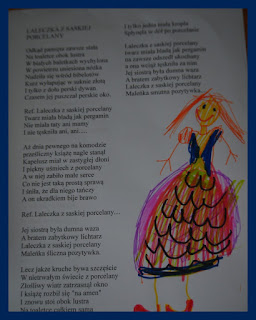 LALECZKA Z SASKIEJ
PORCELANY

Odkąd pamięta zawsze stała
Na nocnej obok lustra
W białych balerinkach wycelowana
W porcelanie uśmiechna
Nudziła się wśród bibelotów
Kurz wyłapywał w złote loki
I tylko o dolu perski dywan
Czasem jej puszczał perskie oko.

Ref. Laleczka z saskiej porcelany
Twarz miała bladą jak pergamin
Nie miała taty ani mamy
I nie tęskniła ani, ani.....

Aż dnia pewnego na komodzie
prześliczny książę nagle stanął
Kapelusz miał w zastygłej dłoni
I piękny uśmiech z porcelany
A w niej zabiło małe serce
Co nie jest taką prostą sprawą
I śniła, że dla niego tańczy
A on ukradkiem bije brawo

Ref. Laleczka z saskiej porcelany…

Jej siostrą była dumna waza
A bratem zabytkowy lichtarz
Laleczka z saskiej porcelany
Maleńka śliczna pozytywka.....

Lecz jakże kruche bywa szczęście
W nietrwałym świecie z porcelany
Złośliwy wiatr zatrzasnął okno
I książę rozbił się "na amen"
I znowu stoi obok lustra
Na toaletce całkiem sama

I tylko jedna mała kropla
Spłynęła w dół po porcelanie

Laleczka z saskiej porcelany
Twarz miała bladą jak pergamin
na zawsze odszedł ukochany
a ona wciąż tęskniła za nim
Jej siostrą była dumna waza
A bratem zabytkowy lichtarz
Laleczka z saskiej porcelany
Maleńka smutna pozytywka....